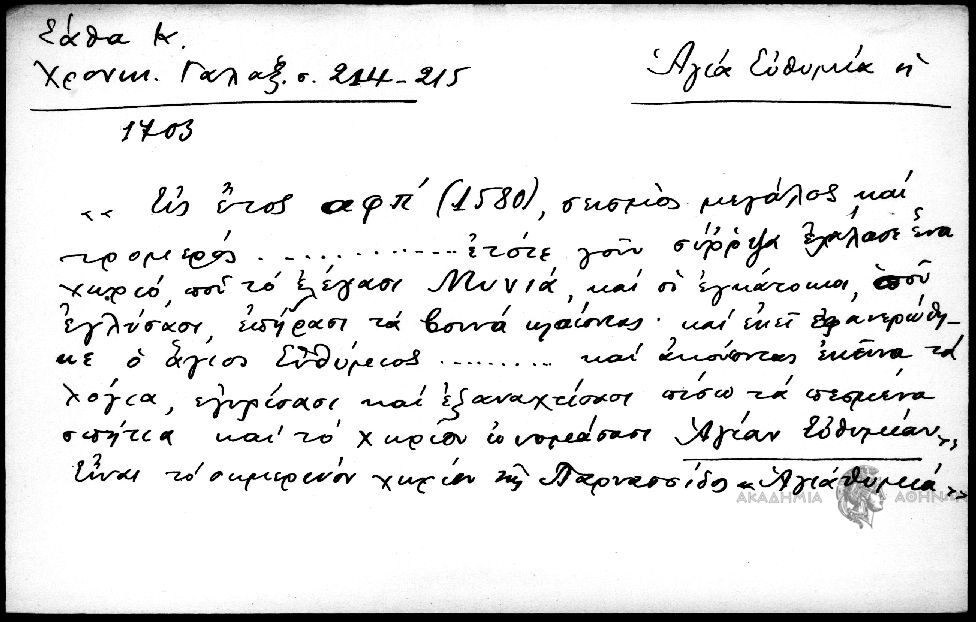 Σάθα Κ.
Χρονικ. Γαλαξ. σ. 214-215
Ἁγιά Εὐθυμία ἡ
1703
« Εἰς ἔτος αφπ΄ (1580), σεισμὸς μεγάλος καί
τρομερός .............. ἐτότε γοῦν σύρριζα ἐχάλασε ἕνα
χωριό, ποῦ τό ἐλέγασι Μυνιά, καί οἱ ἐγκάτοικοι, ὁποῦ
ἐγλύσασι, ἐπήρασι τά βουνά κλαίοντας· καί ἐκεῖ ἐφανερώθη-
κε ὁ ἅγιος Εὐθύμειος ......... καί ἀκούοντας ἐκεῖνα τά
λόγια, ἐγυρίσασι καί ἐξαναχτίσασι πίσω τά πεσμένα
σπήτια καί τό χωρίον ὠνομάσασι Ἁγίαν Εὐθυμίαν»,
Εἶναι τό σημερινόν χωρίον τῆς Παρνασσίδος «Ἁγιάθυμιά»
ΑΚΑΔΗΜΙΑ ΑΘΗΝΩΝ